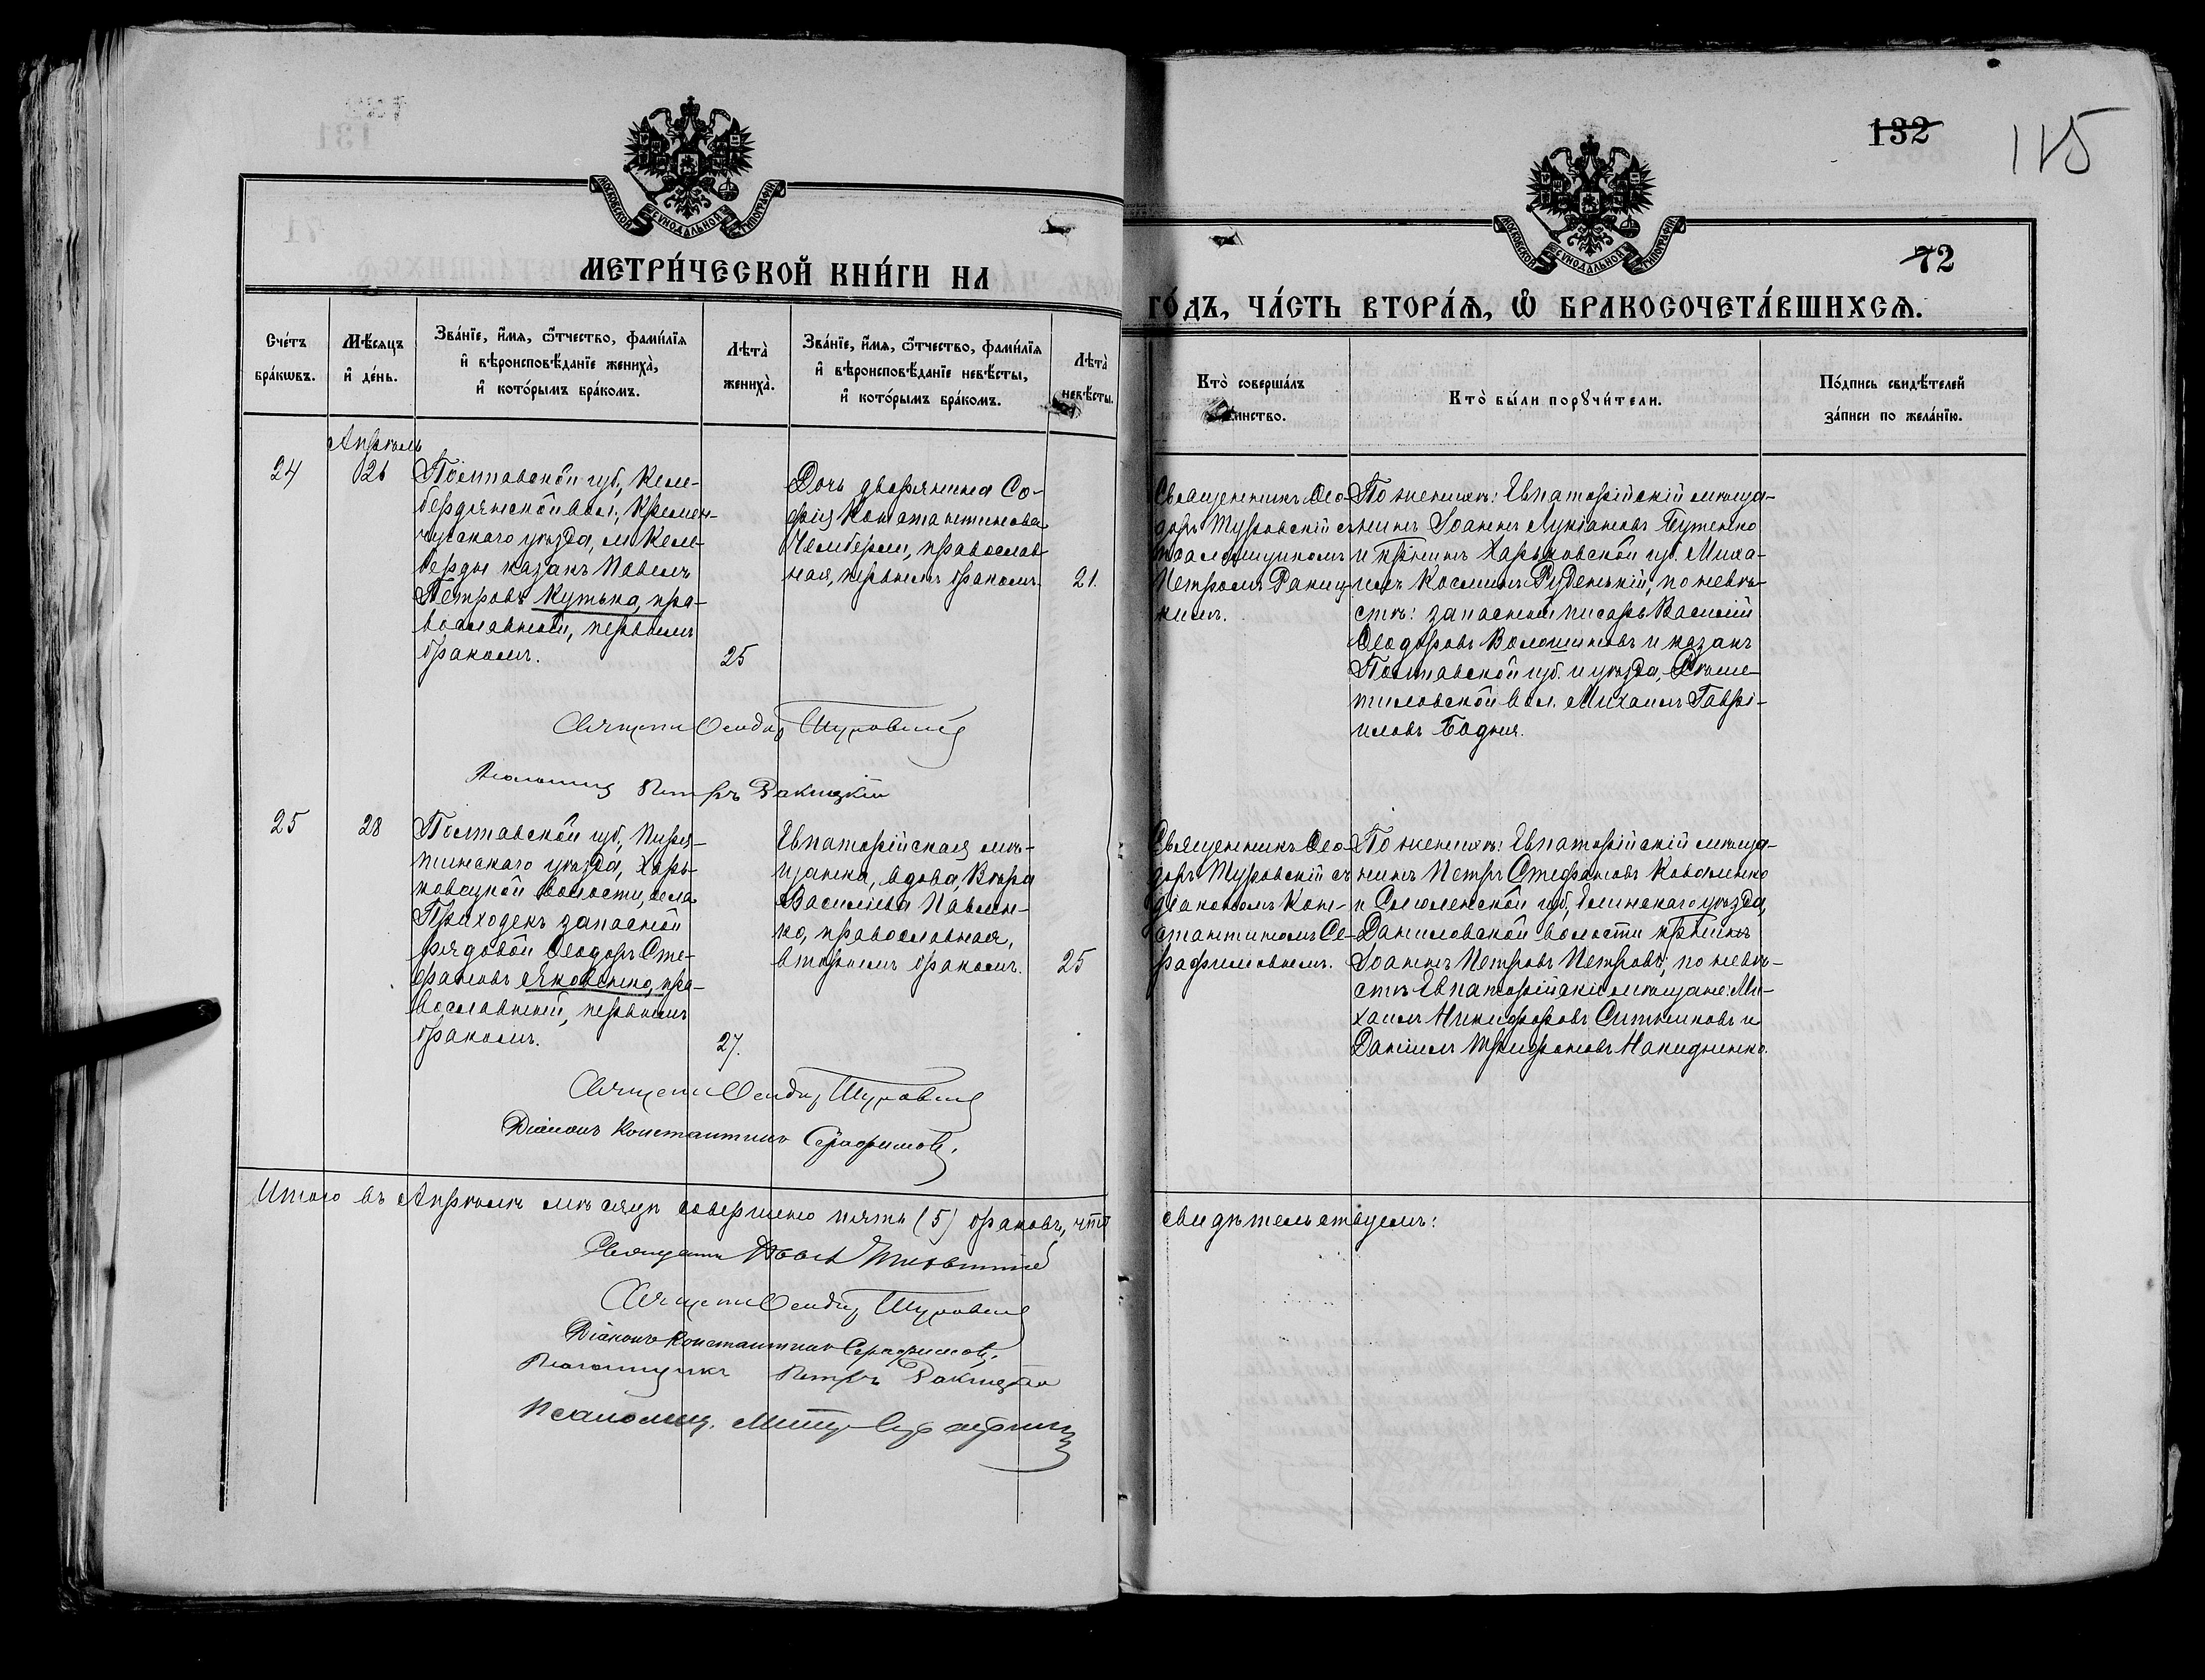 132
115
МОСКОВСКОЙ СѴНОДАЛЬНОЙ ТИПОГРАФІИ
МОСКОВСКОЙ СѴНОДАЛЬНОЙ ТИПОГРАФІИ
72
МЕТРИ́ЧЕСКОЙ КНИ́ГИ НА
ГО́ДЪ, ЧА́СТЬ ВТОРА́Ѧ, Ѡ҆ БРАКОСОЧЕТА́ВШИХСѦ.
Сче́тъ
бра́кѡвъ.
Мѣ́сяцъ
и҆ де́нь.
Зва́нїе, и҆́мѧ, ѻ҆́тчество, фами́лїѧ
и҆ вѣроисповѣ́данїе жениха̀,
и҆ кото́рымъ бра́комъ.
Лѣта̀
жениха̀.
Зва́нїе, и҆́мѧ, ѻ҆́тчество, фами́лїѧ
и҆ вѣроисповѣ́данїе невѣ́сты,
и҆ кото́рымъ бра́комъ.
Лѣта̀
невѣ́сты.
Кто̀ соверша́лъ
таинство.
Кто̀ бы́ли порꙋчи́тели.
По́дпись свидѣ́телей
за́писи по жела́нїю.
Апрѣль
24
26
Полтавской губ., Келе-
бердянской вол., Кремен-
чугскаго уѣзда, м. Келе-
берды казакъ Павелъ
Петровъ Кутька, пра-
вославный, первымъ
бракомъ.
25
Дочь дворянина Со-
фія Константинова
православ-
ная, первымъ бракомъ.
21.
Священникъ Ѳео-
доръ Туровскій съ
псаломщикомъ
Петромъ Ракиц-
кимъ.
По женихѣ: Евпаторійскій мѣща-
нинъ Іоаннъ Лукіановъ Бутенко
и крнинъ Харьковской губ. Миха-
илъ Косминъ Руденькій; по невѣ-
стѣ: запасный писарь Василій
Ѳеодоровъ Волошиновъ и казакъ
Полтавской губ. и уѣзда, Рѣше-
тиловской вол. Михаилъ Гаврі-
иловъ Бодня.
Священн. Ѳеодор Туровскій
Псаломщ. Петръ Ракицкій
25
28
Полтавской губ., Пиря-
тинскаго уѣзда, Харь-
ковецкой волости, села
Приходекъ запасной
рядовой Ѳеодоръ Сте-
фановъ Яковенко, пра-
вославный, первымъ
бракомъ.
27.
Евпаторійская мѣ-
щанка, вдова, Вѣра
Василіева Павлен-
ко, православная,
вторымъ бракомъ.
25
Священникъ Ѳео-
доръ Туровскій съ
діакономъ Кон-
стантиномъ Се-
рафимовымъ.
По женихѣ: Евпаторійскій мѣща-
нинъ Петръ Стефановъ Коваленко
и Смоленской губ., Ельнскаго уѣзда,
Даниловской волости крнинъ
Іоаннъ Петровъ Петровъ; по невѣ-
стѣ Евпаторійскіе мѣщане: Ми-
хаилъ Никифоровъ Ситниковъ и
Даніилъ Трифоновъ Накидненко.
Священн. Ѳеодор Туровскій
Діаконъ Константинъ Серафимовъ.
Итого въ Апрѣлѣ мѣсяцѣ совершено пять (5) браковъ, что
свидѣтельствуемъ:
Священн. Ѳеодор Туровскій
Діаконъ Константинъ Серафимовъ.
Псаломщикъ Петръ Ракицкій
Псаломщ.